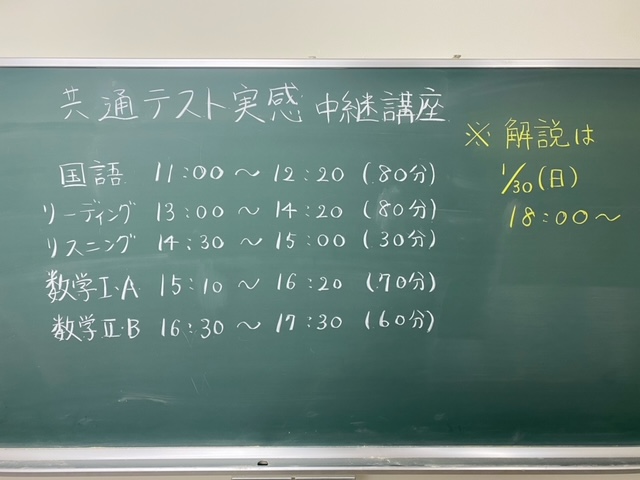 共通テスト実感中継講座
国語 11:00 〜 12:20 (80分)
リーディング 13:00 〜 14:20 (80分)
リスニング 14:30 〜 15:00 (30分)
数学I・A 15:10 〜 16:20 (70分)
数学II・B 16:30 〜 17:30 (60分)
※ 解説は
1/30(日)
18:00〜